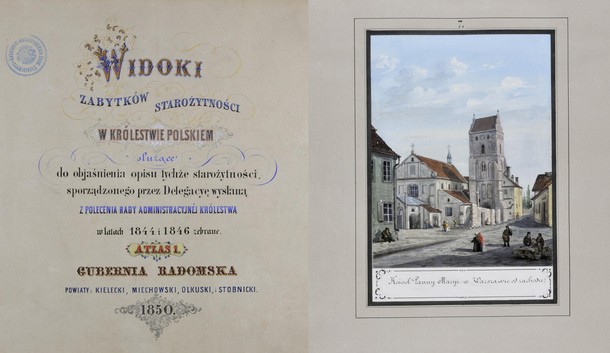 WIDOKI
ZABYTKÓW STAROŻYTNOŚCI
W KRÓLESTWIE POLSKIEM
służące
do objaśnienia opisu tychże starożytności,
sporządzonego przez Delegacyę wysłaną
Z POLECENIA RADY ADMINISTRACYJNÉJ KRÓLESTWA
w latach 1844 i 1846 zebrane.
ATLAS I.
GUBERNIA RADOMSKA
POWIATY: KIELECKI, MIECHOWSKI, OLKUSKI, i STOBNICKI.
1850.
Kościoł Panny Maryi w Warszawie od zachodu